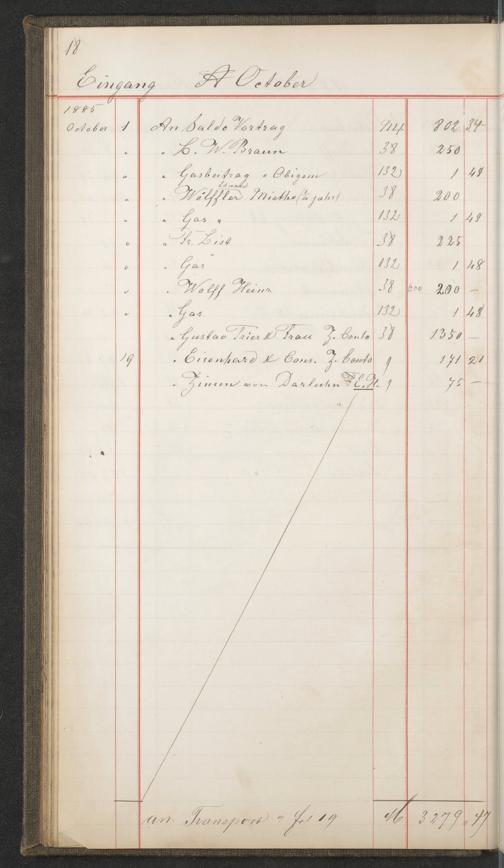 18
Eingang A October
1885
October 1 An Saldo Vortrag 802 34
" " L. W. Braun 38 250
" " Gasbeitrag v Obigem 132 1 48
" " Wölffler Miethe (¼ jahr) 38 200
" " Gas " 132 1 48
" " Fr. List 38 225
" " Gas 132 1 48
" " Wolff Heinr 38 200 —
" " Gas 132 1 48
" Gustav Trier & Frau Z. Conto 38 1350 —
19 " Eisenhard & Cons. Z. Conto 9 171 21
" Zinsen von Darlehn 9 75 —
an Transport a fol 19 M 3279 47